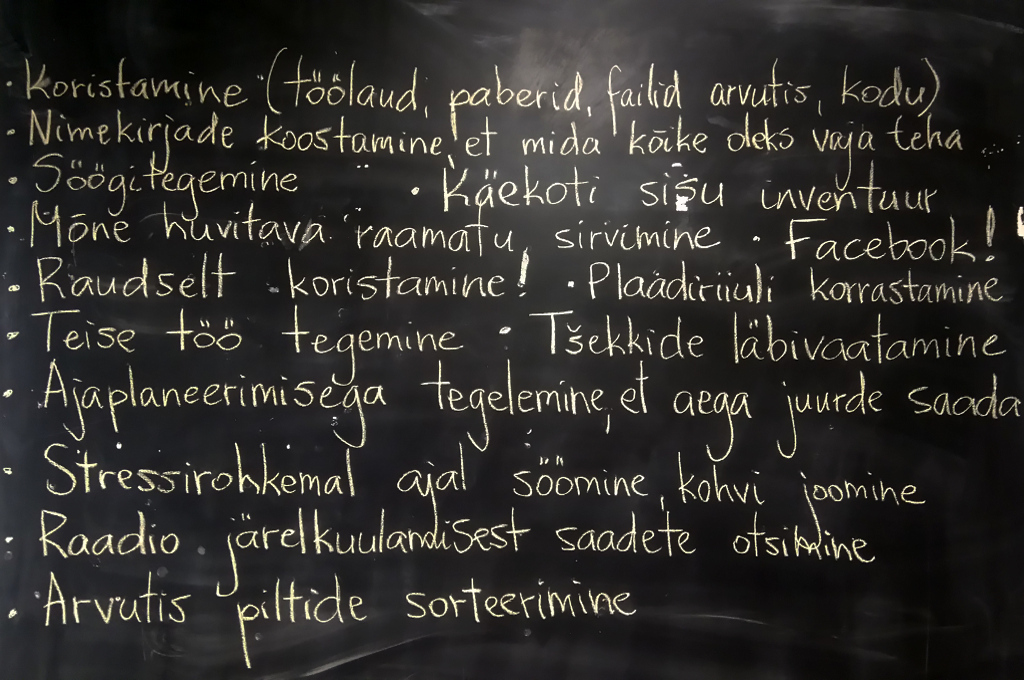 · Koristamine (töölaud, paberid, failid arvutis, kodu)
· Nimekirjade koostamine, et mida kõike oleks vaja teha
· Söögitegemine · Käekoti sisu inventuur
· Mõne huvitava raamatu sirvimine · Facebook!
· Raudselt koristamine! · Plaadiriiuli korrastamine
· Teise töö tegemine · Tšekkide läbivaatamine
· Ajaplaneerimisega tegelemine, et aega juurde saada
· Stressirohkemal ajal söömine, kohvi joomine
· Raadio järelkuulamisest saadete otsimine
· Arvutis piltide sorteerimine